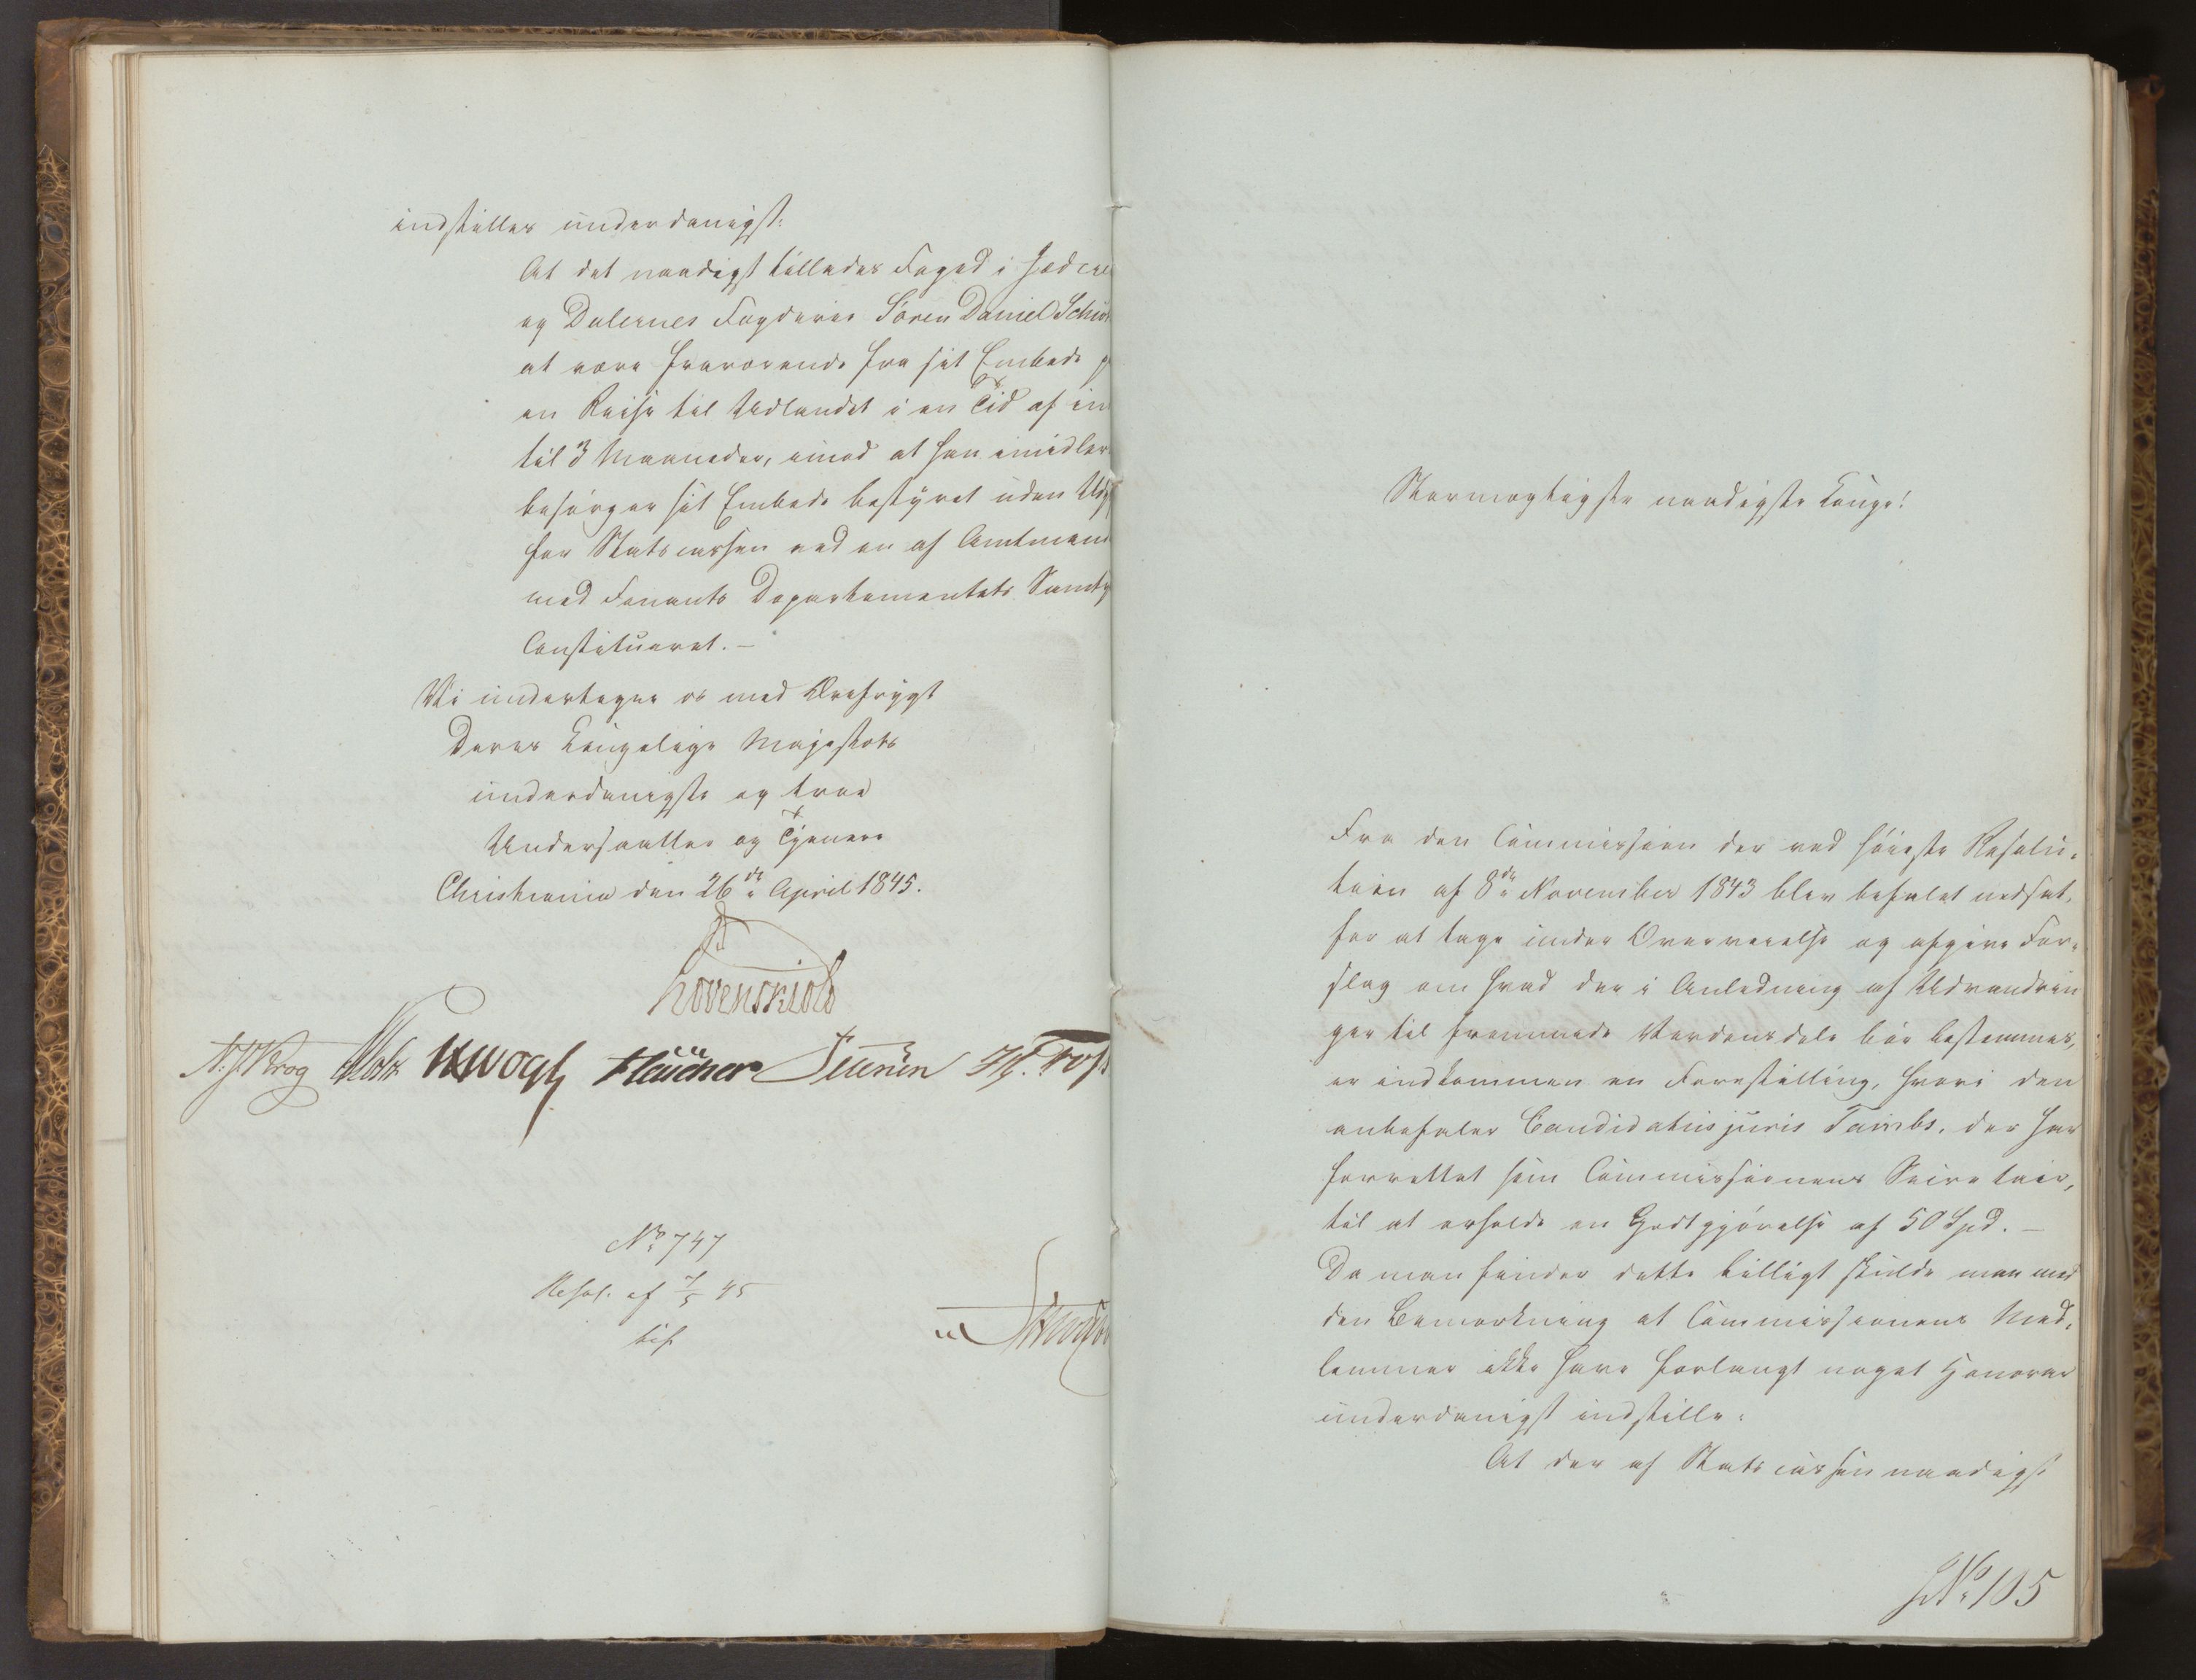 indstilles underdanigst:
At det naadigst tillades Foged i Jædere
og Dalernes Fogderie Søren Daniel Schiø
at være fraværende fra sit Embede p
en Reise til Udlandet i en Tid af in
til 3 Maaneder, imod at han imidler
besørger sit Embede bestyret uden Udg
for Statscassen ved en af Amtmand
med Finants Departementets Samty
Constitueret. –
Vi undertegne os med Ærefrygt
Deres Kongelige Majestæts
underdanigste og troe
Undersaatter og Tjenere
Christiania den 26de April 1845.
Løvenskiold
N. J. Krog Motz Vogt Hauchner Petersen
No 747
Resol. af 7/5 45
Stormægtigste naadigste Konge!
Fra den Commission der ved høieste Resolu-
tion af 8de November 1843 blev befalet nedsat,
for at tage under Overveielse og afgive For-
slag om hvad der i Anledning af Udvandrin
ger til fremmede Verdensdele bør bestemmes,
er indkommen en Forestilling, hvori den
anbefaler Candidatus juris Tambs, der har
forrettet som Commissionens Secretair,
til at erholde en Godtgjørelse af 50 Spd. –
Da man finder dette billigt skulde man med
den Bemærkning at Commissionens Med-
lemmer ikke have forlangt noget Honorar
underdanigst indstille:
At der af Statscassen naadigst
No 105